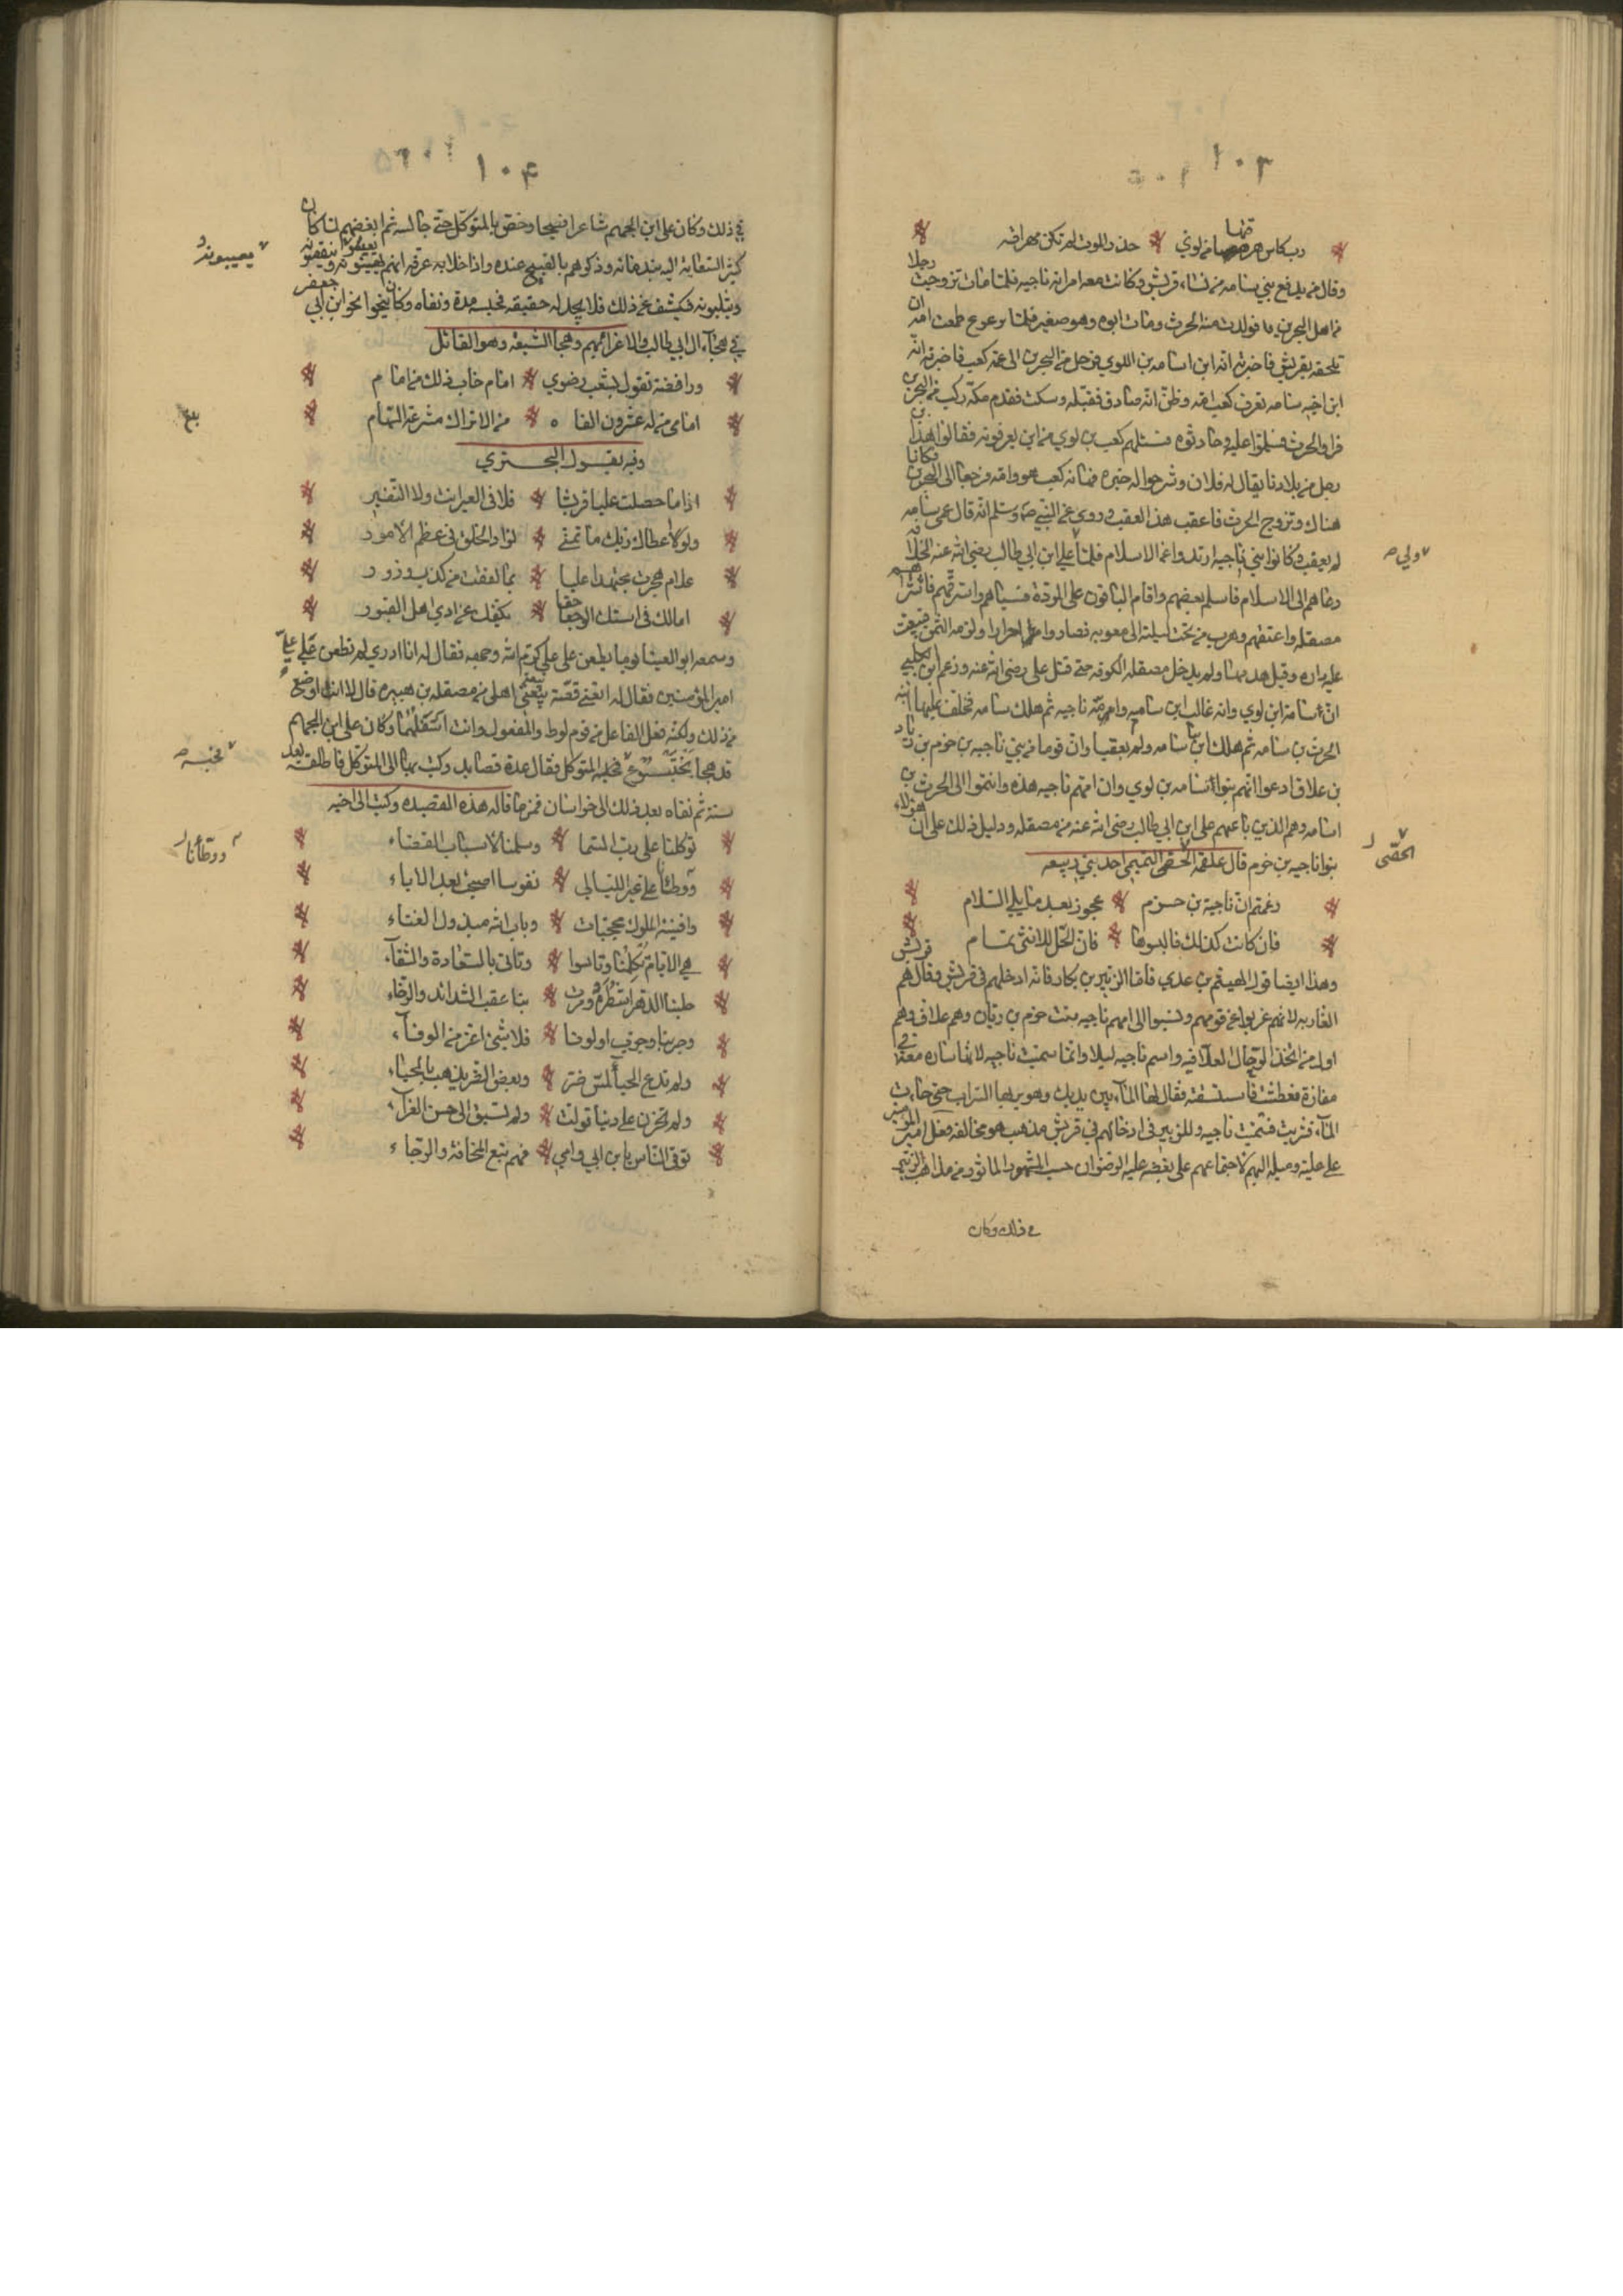 ١٠٣
رب كاس هرقتها يا بن لوي حذر الموت لم تكن مهراقه
وقال من يدفع بني سامه من نساء قريش وكانت معه امراته ناجيه فلما مات تزوجت رجلا
من اهل البحرين فولدت منه الحرث ومات ابوه وهو صغير فلما ترعرع طمعت امه ان
تلحقه بقريش فاخبرته انه ابن اسامه بن اللوي فرحل من البحرين الى عمه كعب فاخبره انه
ابن اخيه سامه فعرف كعب امه وظن انه صادق فقبله ومكث فقدم مكة ركب من البحرين
فراوا الحرث فسلموا عليه وحادثوه فسئلهم كعب بن لوي من اين يعرفونه فقالوا هذا بن
رجل من بلادنا يقال له فلان وشرحوا له خبره فنفاه كعب هو وامه فرجعا الى البحرين فكانا
هناك وتزوج الحرث فاعقب هذا العقب وروي عن النبي صلى وسلم انه قال عمي سامه
لم يعقب وكانوا بني ناجيه ارتدوا عن الاسلام فلما علي ابن ابي طالب رضي الله عنه الخلافه
ولي ص
دعاهم الى الاسلام فاسلم بعضهم واقام الباقون على الردة فسباهم واسترقهم فاشتراهم
مصقله واعتقهم وهرب من تحت ليلته الى معويه فصاروا احرارا ولزمه الثمن
عليه داره وقيل هدمها ولم يدخل مصقله الكوفه حتى قتل علي رضي الله عنه وزعم ابن الكلبي
ان سامة ابن لوي ولد غالب ابن سامه وامه ناجيه ثم هلك سامه فخلف عليها ابنه
الحرث بن سامه ثم هلك ابنا سامه ولم يعقبا وان قوما من بني ناجيه بن حزم بن زباد
بن علاف ادعوا انهم بنوا سامه بن لوي وان امهم ناجيه هذه وانتموا الى الحرث بن
اسامه وهم الذين باعهم علي ابن ابي طالب رضي الله عنه من مصقله ودليل ذلك على ان هؤلاء
بنوا ناجيه بن حزم قال علقمه الحصفي التميمي احد بني ربيعه
الحصّى
زعمتم ان ناجية بن حزم عجوز بعد ما بلي السلام
فان كانت كذلك فالبسوها فان الحل للانثى تمام
وهذا ايضا قول الهيثم بن عدي فاما الزبير بن بكار فانه ادخلهم في قريش وقال هم قريش
العازبه لانهم عزبوا عن قومهم ونسبوا الى امهم ناجيه بنت حزم بن ربان وهم علاف وهم
اول من اتخذ الرحال العلافيه واسم ناجيه ليلا وانما سميت ناجيه لانها سارت معه في
مفازة فعطشت فاستسقته فقال لها الماء بين يديك وهو يريها السراب حتى جاءت
الماء فشربت فسميت ناجيه وللزبير في ادخالهم في قريش مذهب هو مخالفه فعل امير المؤمنين
علي عليه وميله اليهم لاجتماعهم على بغضه عليه الرضوان حسب المشهور الماثور من مذاهب الزبير
في ذلك وكان
١٠۴
في ذلك وكان علي ابن الجهم شاعرا فصيحا وخص بالمتوكل حتى جالسه ثم ابغضهم لما كان
كثير السعايه اليه بندمائه وذكرهم بالقبيح عنده واذا خلا به عرفه انهم يعيبونه
يعيبونه
ويثلبونه فيكشف عن ذلك فلا يجد له حقيقه فحبسه مدة ونفاه وكان ينحوا نحو ابن ابي جعفر
في هجاء ال ابي طالب والاغراء بهم وهجا الشيعه وهو القائل
ورافضة تقول بشعب رضوي امام خاب ذلك من امام
امامي من له عشرون الفا من الاتراك مشرعة السهام
بلغ
وفيه يقول البحتري
اذا ما حصلت عليا قريش فلا في العير انت ولا النفير
ولو اعطاك ربك ما تمنى لزاد الخلق في عظم الامور
علام هجوت مجتهدا عليا بما لفقت من كذب وزور
امالك في استك الوجعا يكفك عن اذي اهل القبور
وسمعه ابو العينا يوما يطعن على علي كرم الله وجهه فقال له انا ادري لم تطعن علي علي
امير المؤمنين فقال له اتعني قصة بيعه اهلي من مصقله بن هبيره قال لا انت اوضع
من ذلك ولكنه قتل الفاعل من قوم لوط والمفعول وانت اسفلهما وكان علي ابن الجهم
قد هجا بختيشوع فحبسه المتوكل فقال عدة قصايد وكتب بها الى المتوكل فاطلقه بعد
فحبسه ص
سنة ثم نفاه بعد ذلك الى خراسان فمن ما قاله هذه القصيده وكتب الى اخيه
توكلنا على رب السما وسلمنا لاسباب القضاء
ووطأنا على غير الليالي نفوسا اصبحت بعد الاباء
ووطّأنا
وافنية الملوك محجبات وباب الله مبذول الفناء
هي الايام تكلمنا وتاسوا وتاتي بالسعادة والشقاء
حلبنا الدهر اشطره ومرت بنا عقب الشدائد والرخاء
وجربنا وجرب اولونا فلا شيئ اعز من الوفاء
ولم ندع الحيا لمس ضر وبعض الضر يذهب بالحياء
ولم نحزن على دنيا تولت ولم نسبق الى حسن العزاء
توق الناس يا بن ابي وامي فهم تبع المخافة والرجاء